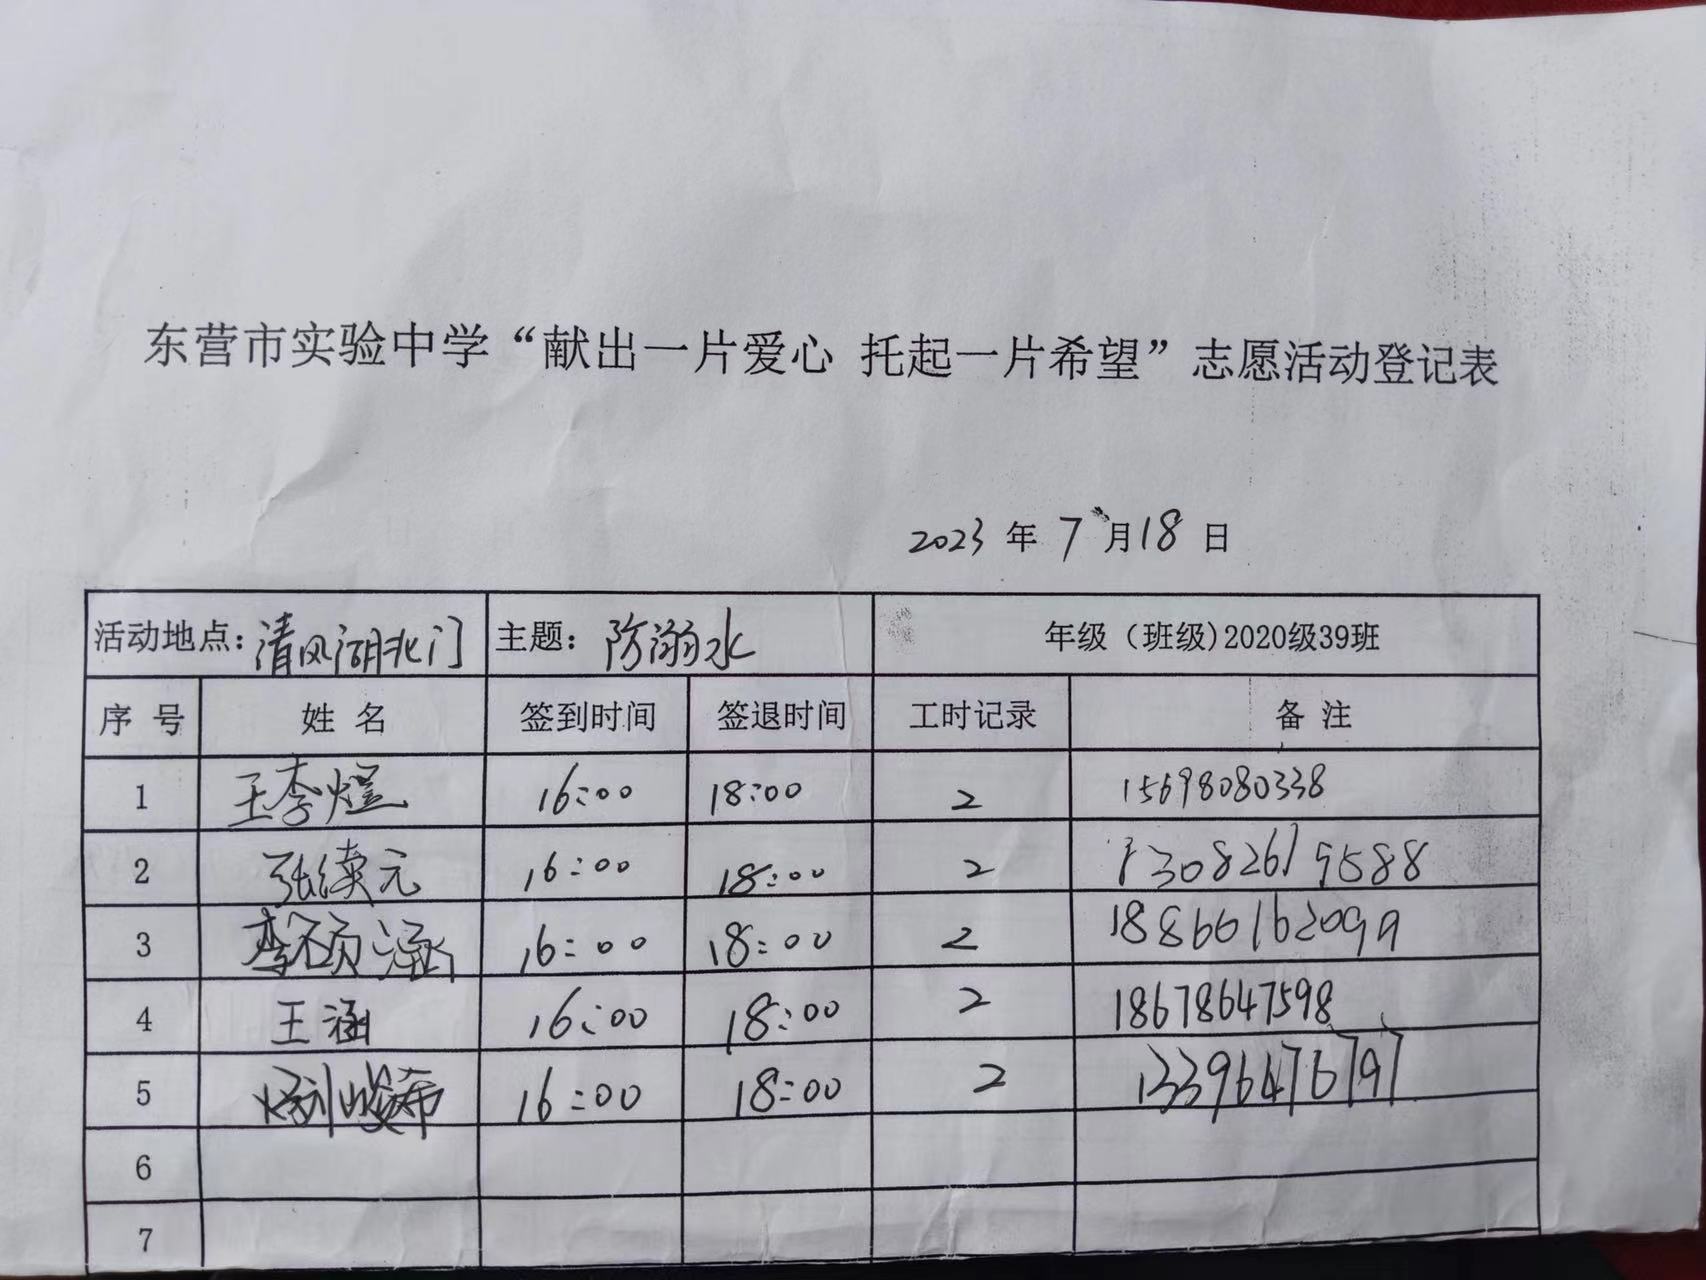 东营市实验中学“献出一片爱心 托起一片希望”志愿活动登记表
2023 年 7 月 18 日
活动地点：清风湖北门 主题：防溺水 年级（班级)2020级39班
序 号 姓 名 签到时间 签退时间 工时记录 备 注
1 王李煜 16:00 18:00 2 15698080338
2 张续元 16:00 18:00 2 13082619588
3 李硕涵 16:00 18:00 2 18866162099
4 王涵 16:00 18:00 2 18678647598
5 16:00 18:00 2 13396476797
6
7